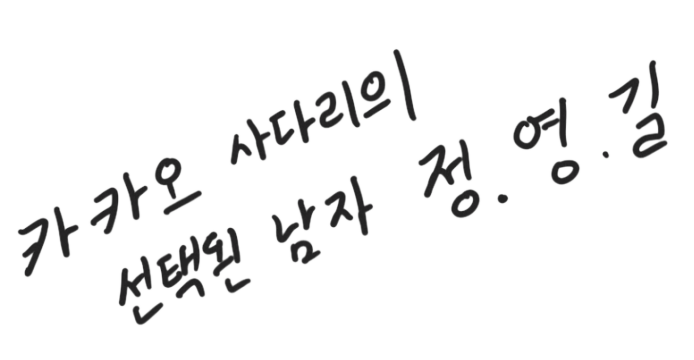 카카오 사다리의
선택된 남자 정.영.길